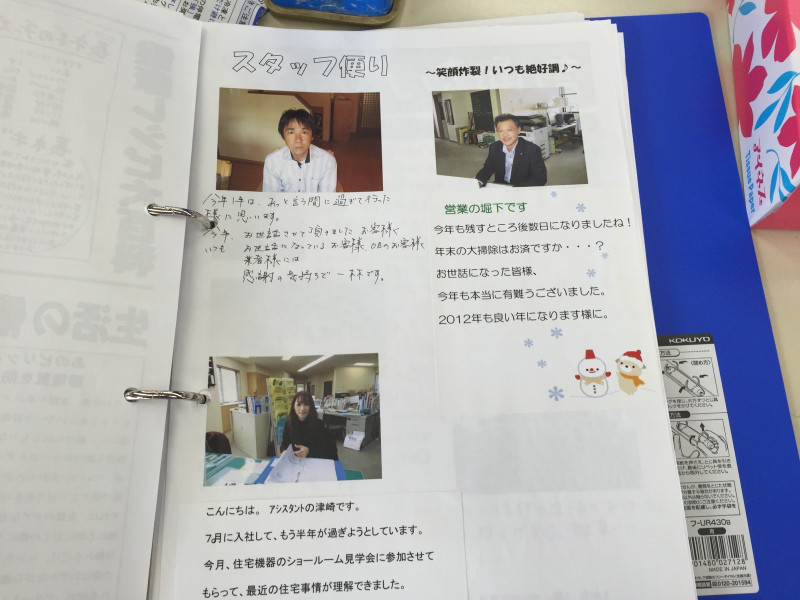 スタッフ便り
～笑顔炸裂！いつも絶好調♪～
今年1年は、あっと言う間に過ぎて行った
様に思います。
今年、お世話させて頂きましたお客様
いつもお世話になっているお客様、OBのお客様、
業者様には
感謝の気持ちで一杯です。
営業の堀下です
今年も残すところ後数日になりましたね！
年末の大掃除はお済ですか・・・？
お世話になった皆様、
今年も本当に有難うございました。
2012年も良い年になります様に。
こんにちは。 アシスタントの津崎です。
7月に入社して、もう半年が過ぎようとしています。
今月、住宅機器のショールーム見学会に参加させて
もらって、最近の住宅事情が理解できました。
KOKUYO
フ-UR430B
MADE IN JAPAN
0120-201594
Tissue Paper